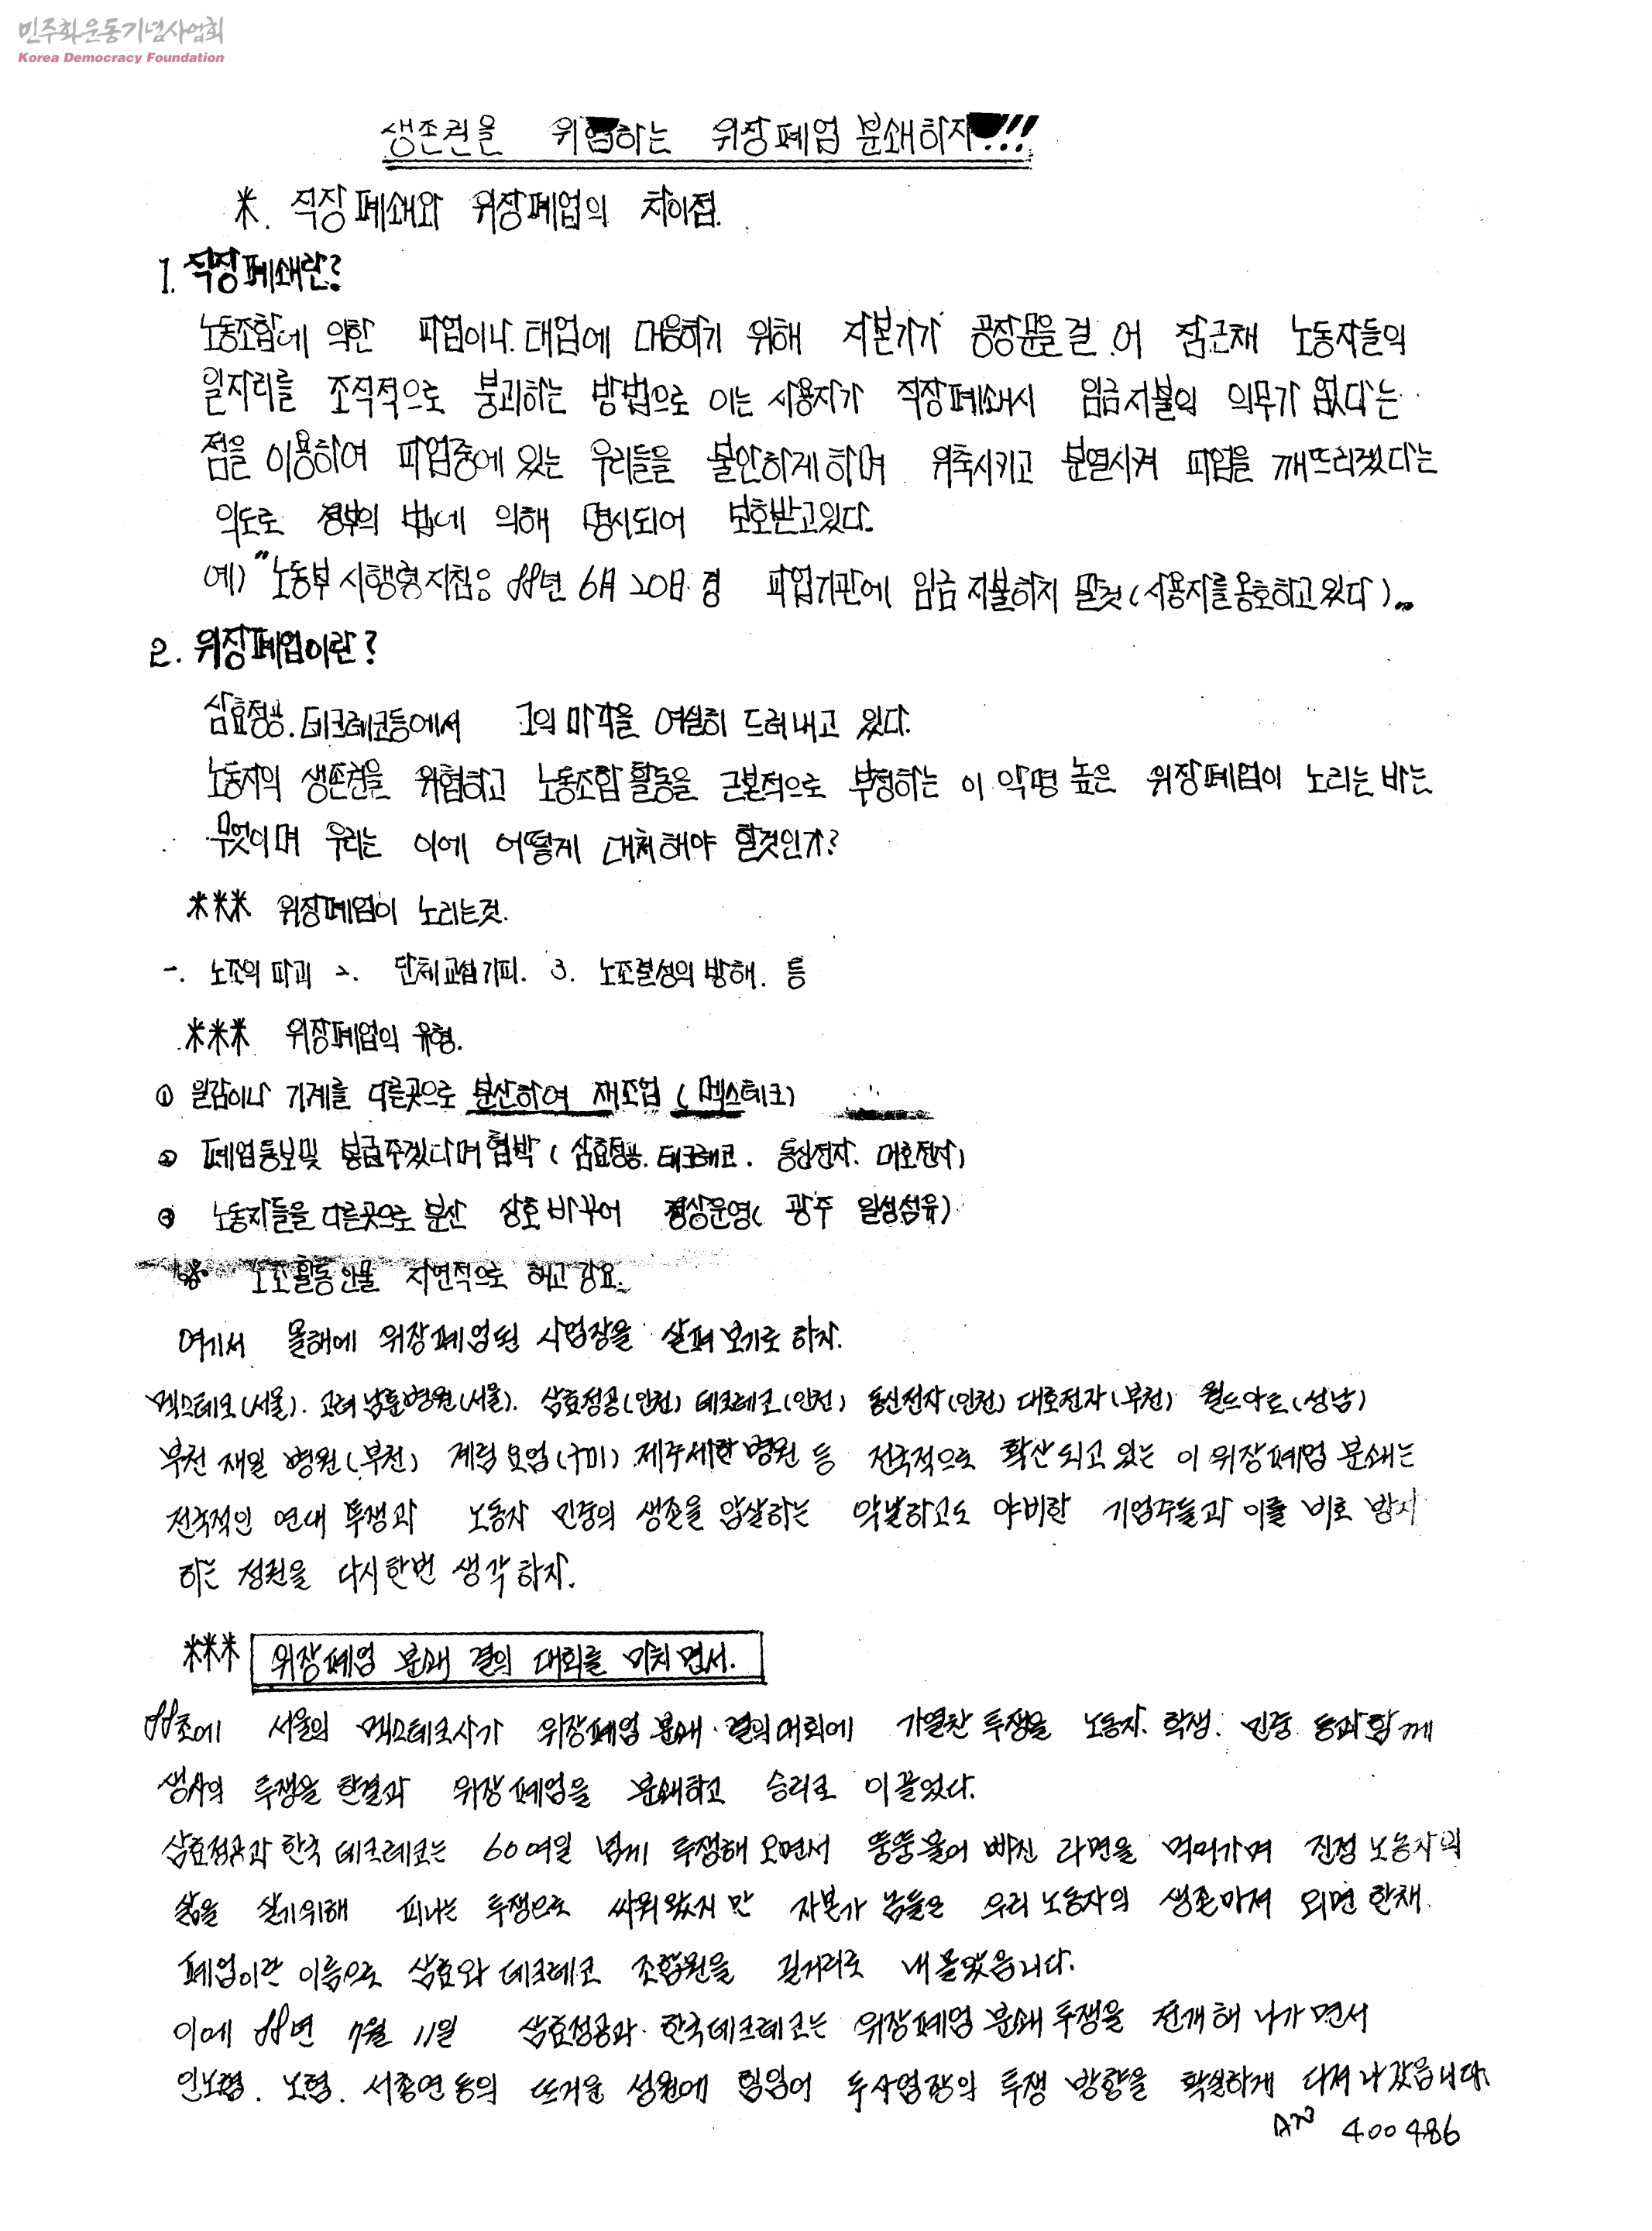 민주화운동기념사업회
Korea Democracy Foundation
생존권을 위협하는 위장폐업 분쇄하자!!!
※. 직장폐쇄와 위장폐업의 차이점.
1. 직장폐쇄란?
노동조합에 의한 파업이나. 태업에 대응하기 위해 자본가가 공장문을 걸어 잠근채 노동자들의
일자리를 조직적으로 붕괴하는 방법으로 이는 사용자가 직장폐쇄시 임금지불의 의무가 없다는
점을 이용하여 파업중에 있는 우리들을 불안하게 하며 위축시키고 분열시켜 파업을 깨뜨리겠다는
의도로 정부의 법에 의해 명시되어 보호받고있다.
예) "노동부 시행령지침응 88년 6月 20日 경 파업기관에 임금 지불하지 말것(사용자를 옹호하고 있다)"
2. 위장폐업이란?
삼효정공. 테크레코등에서 그의 마각을 여실히 드러내고 있다.
노동자의 생존권을 위협하고 노동조합 활동을 근본적으로 부정하는 이 악명 높은 위장폐업이 노리는 바는
무엇이며 우리는 이에 어떻게 대처해야 할것인가?
*** 위장폐업이 노리는것.
一. 노조의 파괴 2. 단체교섭기피. 3. 노조결성의 방해. 등
*** 위장폐업의 유형.
① 일감이나 기계를 다른곳으로 분산하여 재조업 (멕스테크)
② 폐업통보및 봉급주겠다며 협박 (삼효정공. 테크레코. 동신전자. 대호전자)
③ 노동자들을 다른곳으로 분산 상호 바꾸어 정상운영( 광주 일성섬유)
노조활동인물 자연적으로 해고강요.
여기서 올해에 위장폐업된 사업장을 살펴 보기로 하자.
멕스테크(서울). 고려 남훈병원(서울). 삼효정공(인천) 테크레코(인천) 동신전자(인천) 대호전자(부천) 월드아트(성남)
부천 제일 병원(부천) 계림 요업(구미) 제주세한병원 등 전국적으로 확산 되고 있는 이 위장폐업 분쇄는
전국적인 연대 투쟁과 노동자 민중의 생존을 압살하는 악날하고도 야비한 기업주들과 이를 비호 방지
하는 정권을 다시한번 생각 하자.
*** 위장폐업 분쇄 결의 대회를 마치면서.
88초에 서울의 멕스테크사가 위장폐업 분쇄·결의대회에 가열찬 투쟁을 노동자. 학생. 민중 등과 함께
생사의 투쟁을 한결과 위장 폐업을 분쇄하고 승리로 이끌었다.
삼효정공과 한국 테크레코는 60여일 넘게 투쟁해 오면서 뚱뚱불어 빠진 라면을 먹어가며 진정 노동자의
삶을 살기위해 피나는 투쟁으로 싸워 왔지 만 자본가 놈들은 우리 노동자의 생존마저 외면 한채.
폐업이란 이름으로 삼효와 테크레코 조합원을 길거리로 내 몰았읍니다.
이에 88년 7월 11일 삼효정공과 한국테크레코는 위장폐업 분쇄 투쟁을 전개해 나가 면서
인노협. 노협. 서총연 등의 뜨거운 성원에 힘입어 두사업장의 투쟁 방향을 확실하게 다져 나갔읍니다.
400486